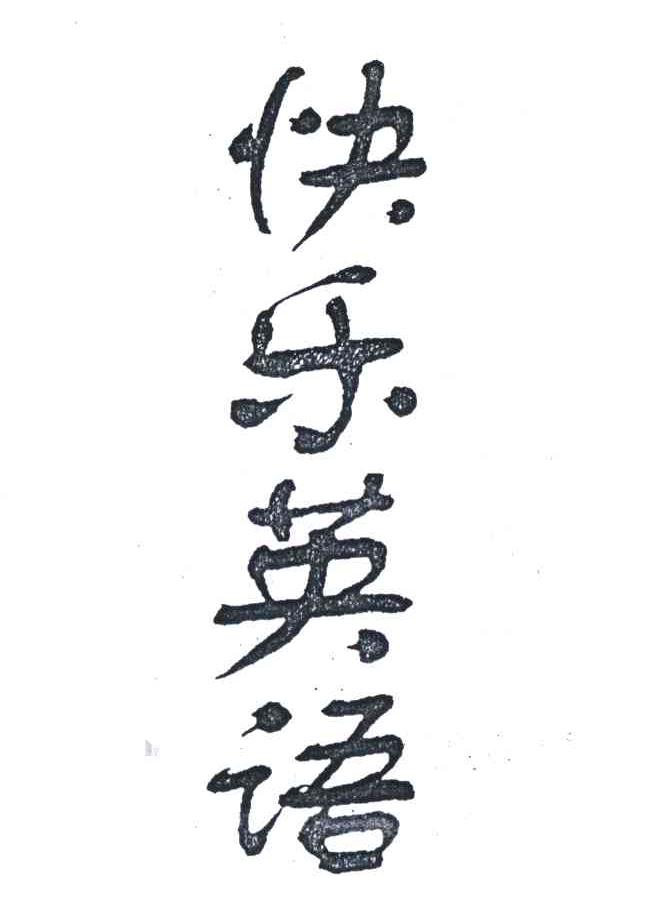 快乐英语